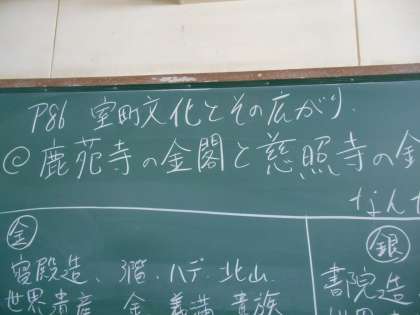 P86 室町文化とその広がり.
◎鹿苑寺の金閣と慈照寺の金
なんで
金
寝殿造、3階、ハデ、北山
世界遺産 金 義満 貴族
銀
書院造
世界